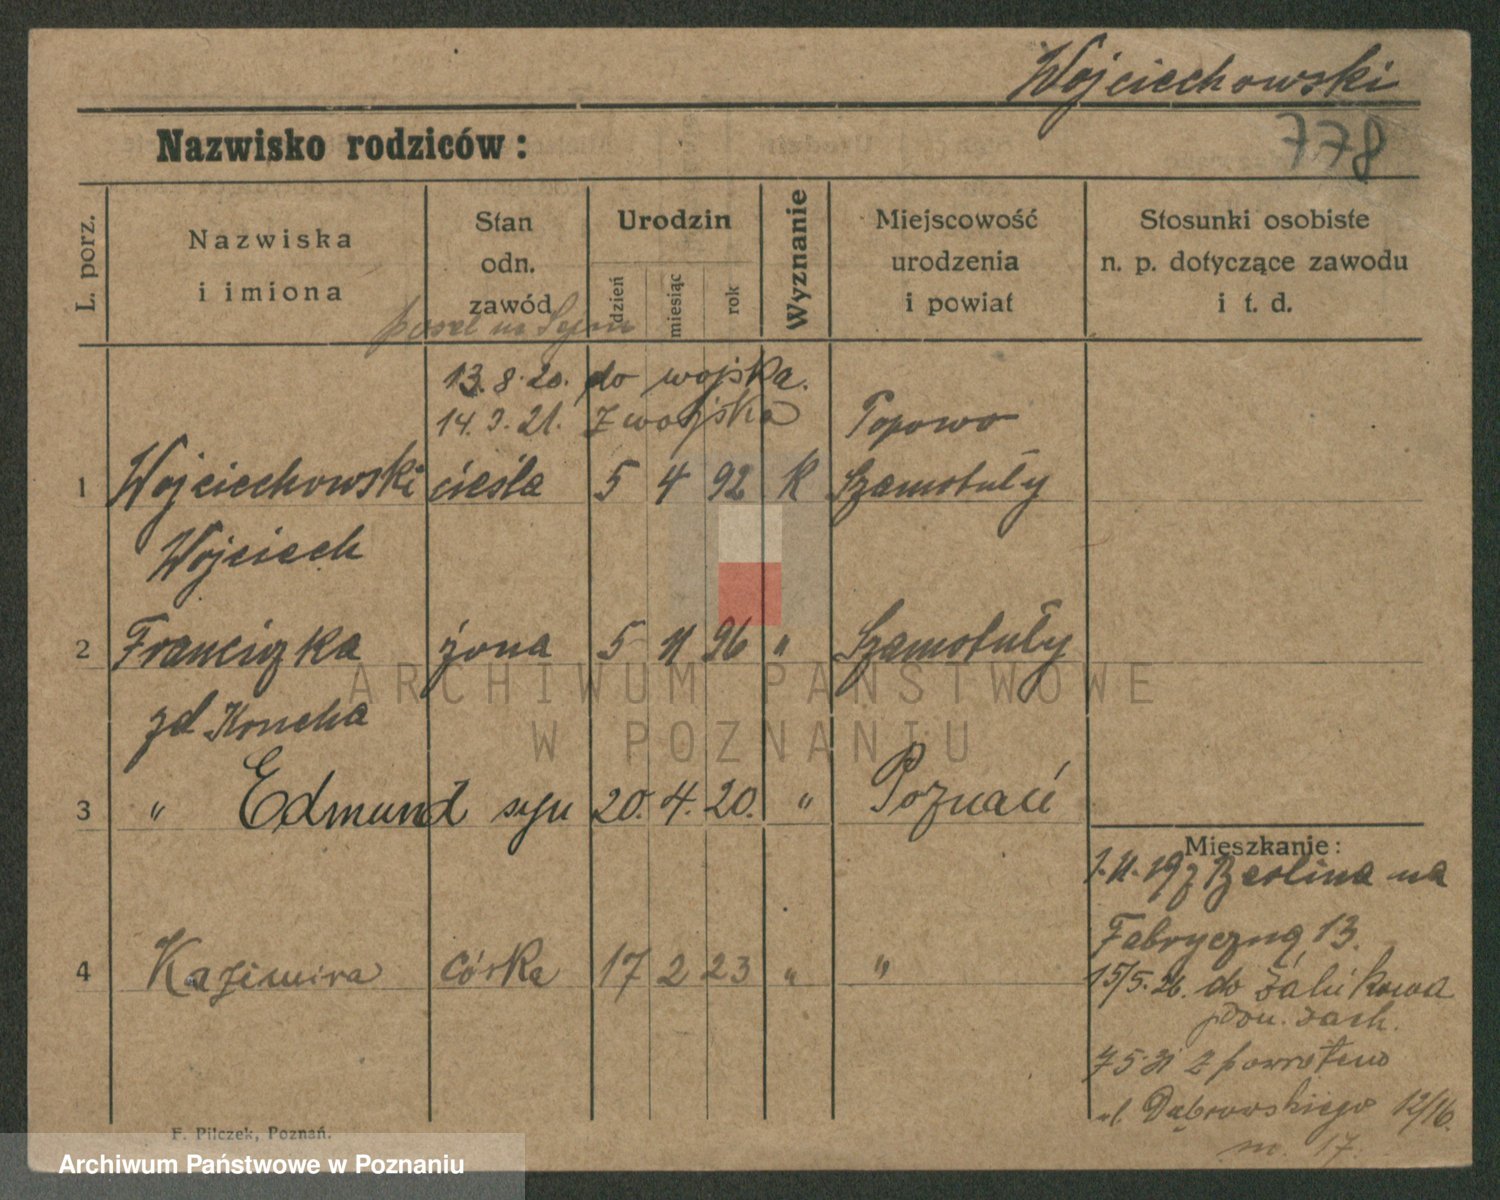 Wojciechowski
Nazwisko rodziców:
778
L. porz.
Nazwiska
i imiona
Stan
odn.
zawód
Urodzin
dzień
miesiąc
rok
Wyznanie
Miejscowość
urodzenia
i powiat
Stosunki osobiste
n. p. dotyczące zawodu
i t. d.
poseł na Sejm
13.8.20. do wojska.
14.3.21. z wojska Popowo
1 Wojciechowski cieśla 5 4 92 K Szamotuły
Wojciech
2 Franciszka żona 5 11 96 " Szamotuły
zd
3 " Edmund syn 20. 4. 20. " Poznań
4 Kazimira córka 17 2 23 " "
Mieszkanie:
1.11.19 z Berlina na
Fabryczną 13.
15/5.26. do
pow.
z powrotem
ul. Dąbrowskiego 12/16.
m. 17.
F. Pilczek, Poznań.
ARCHIWUM PAŃSTWOWE
W POZNANIU
Archiwum Państwowe w Poznaniu